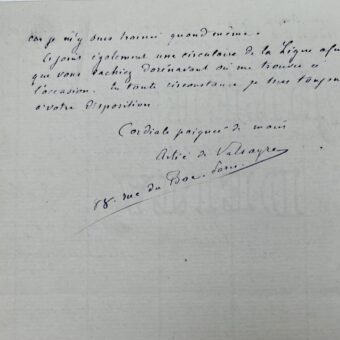 car je m'y suis trainée quand même.
Ci joint également une circulaire de la Ligue afin
que vous sachiez dorénavant où me trouver à
l'occasion. En toute circonstance je suis toujours
à votre disposition
Cordiale poignée de main
Astié de Valsayre
18. rue du Bac. Paris.